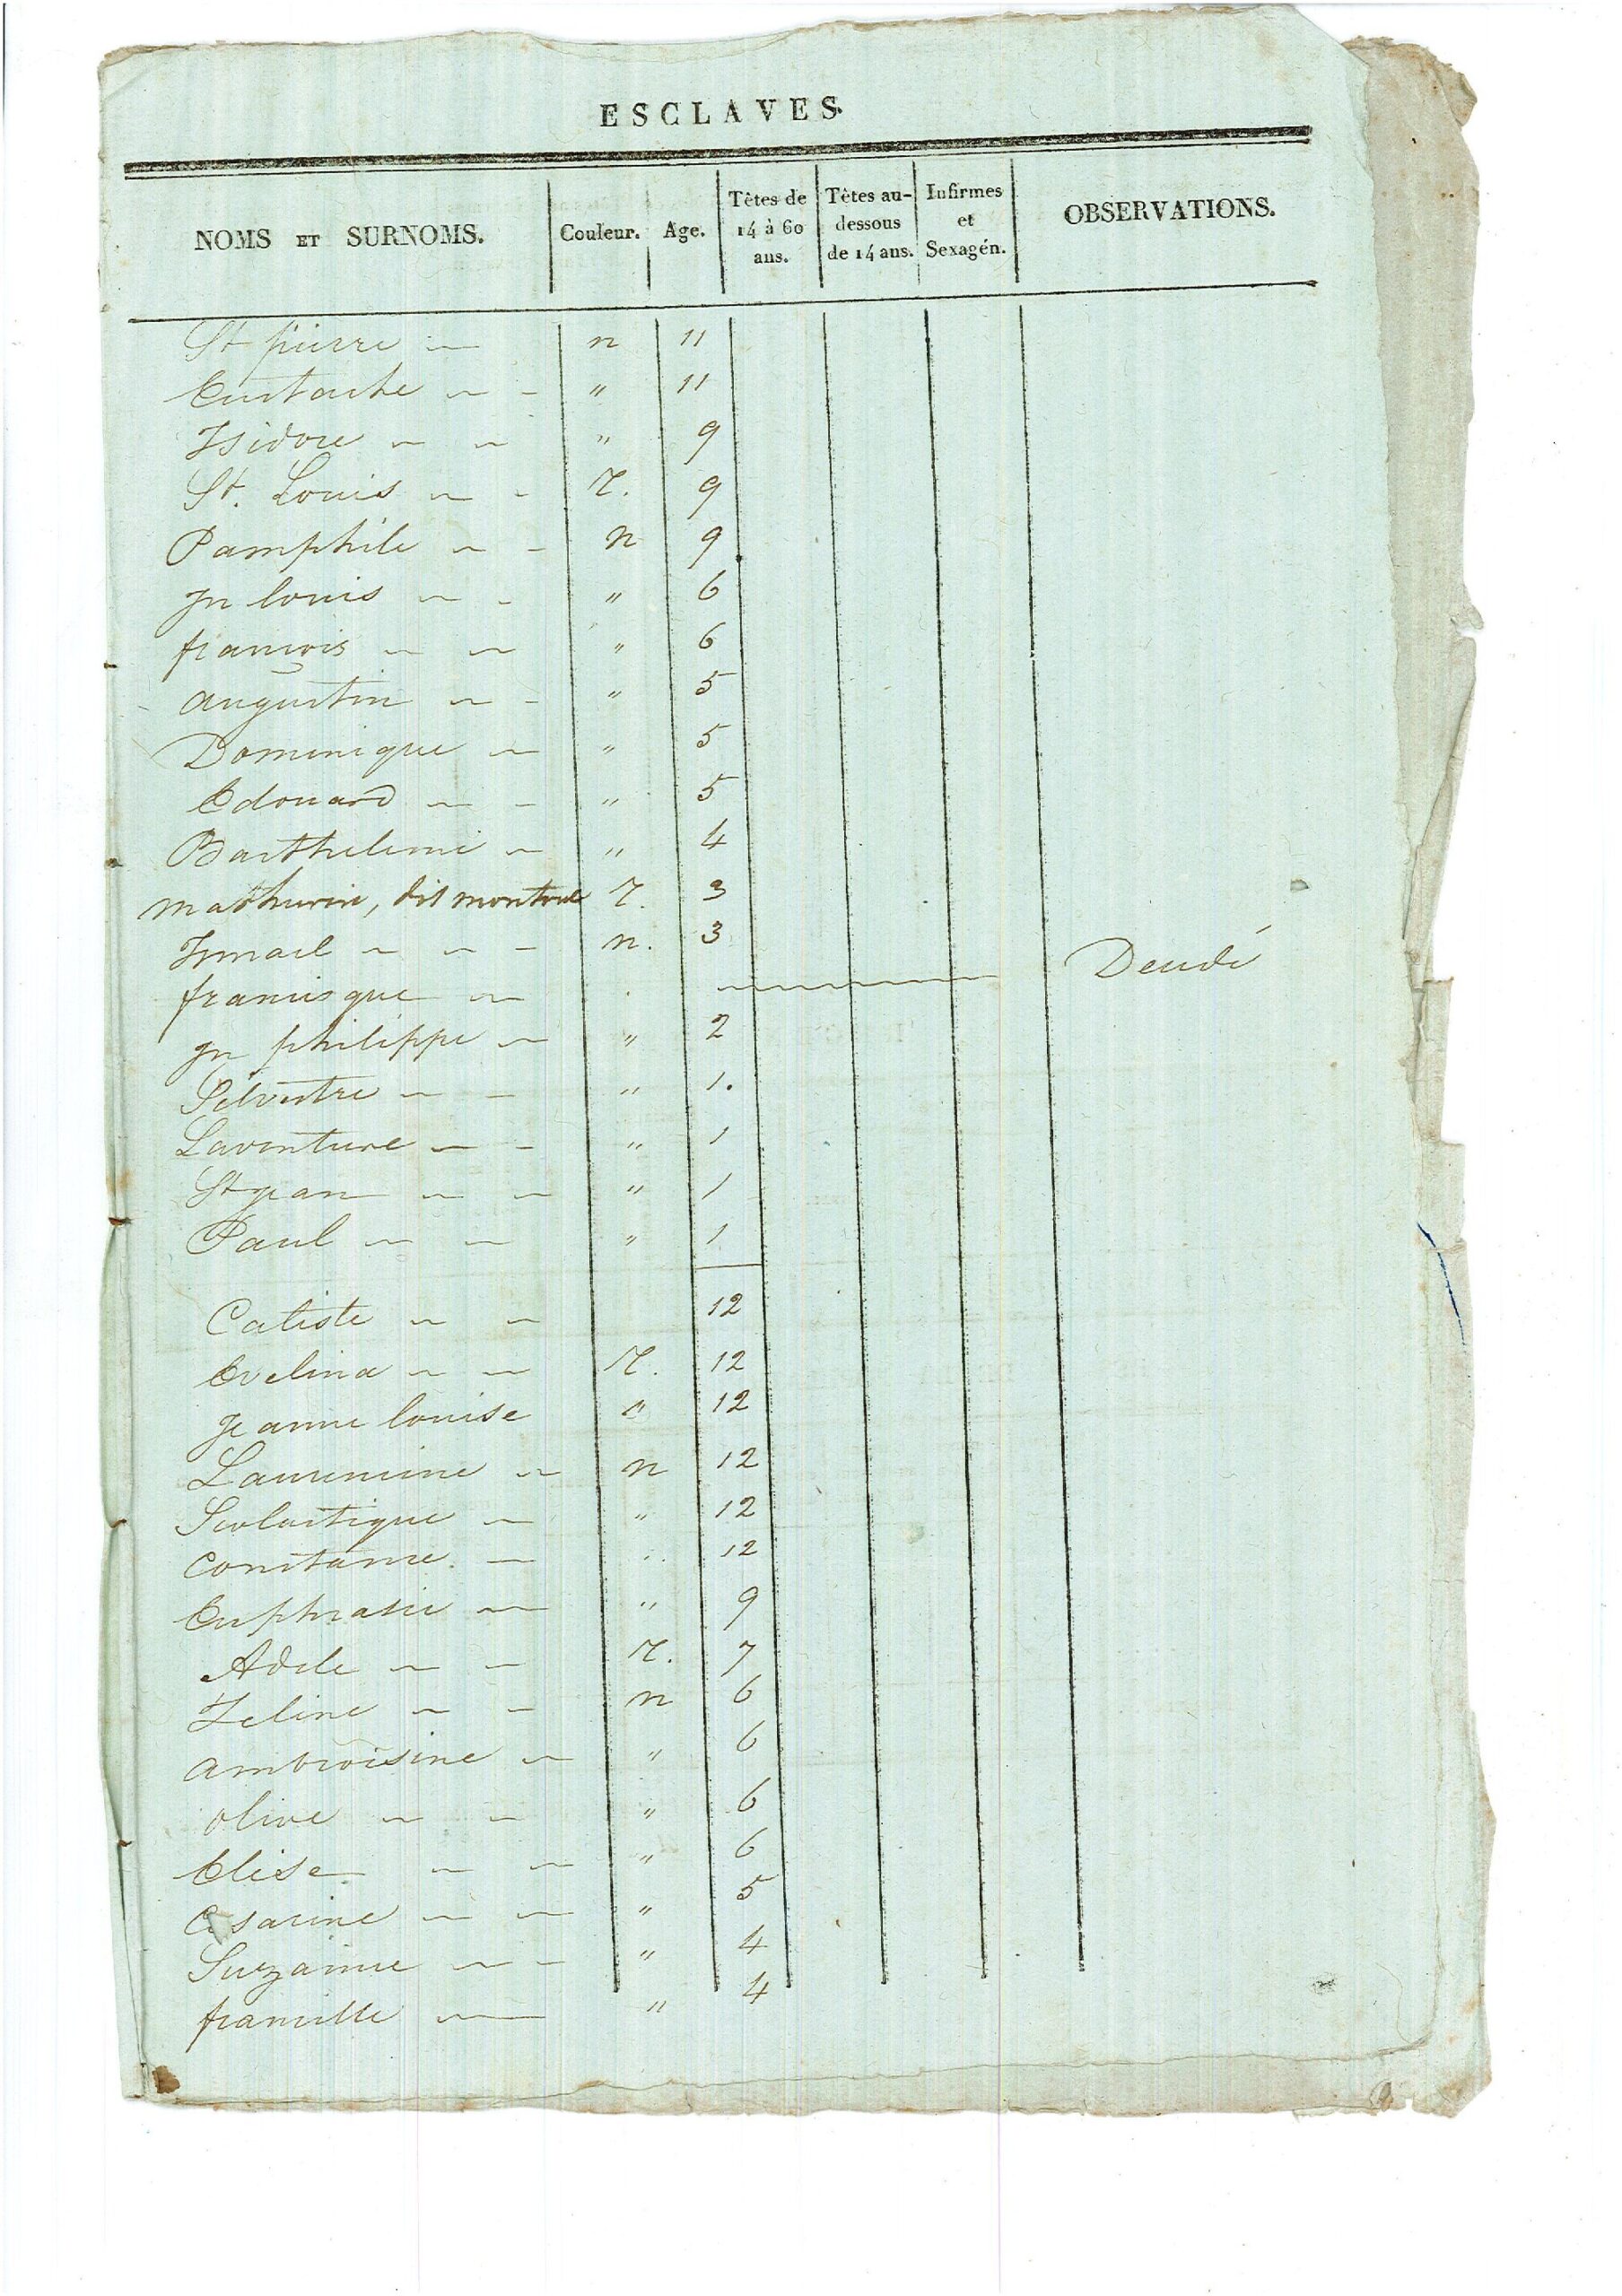 ESCLAVES.
NOMS ET SURNOMS. Couleur. Age. Têtes de 14 à 60 ans. Têtes au-dessous de 14 ans. Infirmes et Sexagén. OBSERVATIONS.
St pierre n 11
Eustache " 11
Isidore " 9
St. Louis r. 9
Pamphile n 9
Jn louis " 6
françois " 6
augustin " 5
Dominique " 5
Edouard " 5
Barthelemi " 4
mathurin, dit r. 3
Ismael n. 3
francisque Décédé
Jn philippe " 2
Silvestre " 1.
Laventure " 1
St jean " 1
Paul " 1
Caliste 12
Evelina r. 12
Jeanne louise " 12
Laurencine n 12
Scolastique " 12
Constance " 12
Euphrasie " 9
Adele r. 7
Zeline n 6
ambroisine " 6
olive " 6
Elise " 6
Cesarine " 5
Suzanne " 4
francille " 4